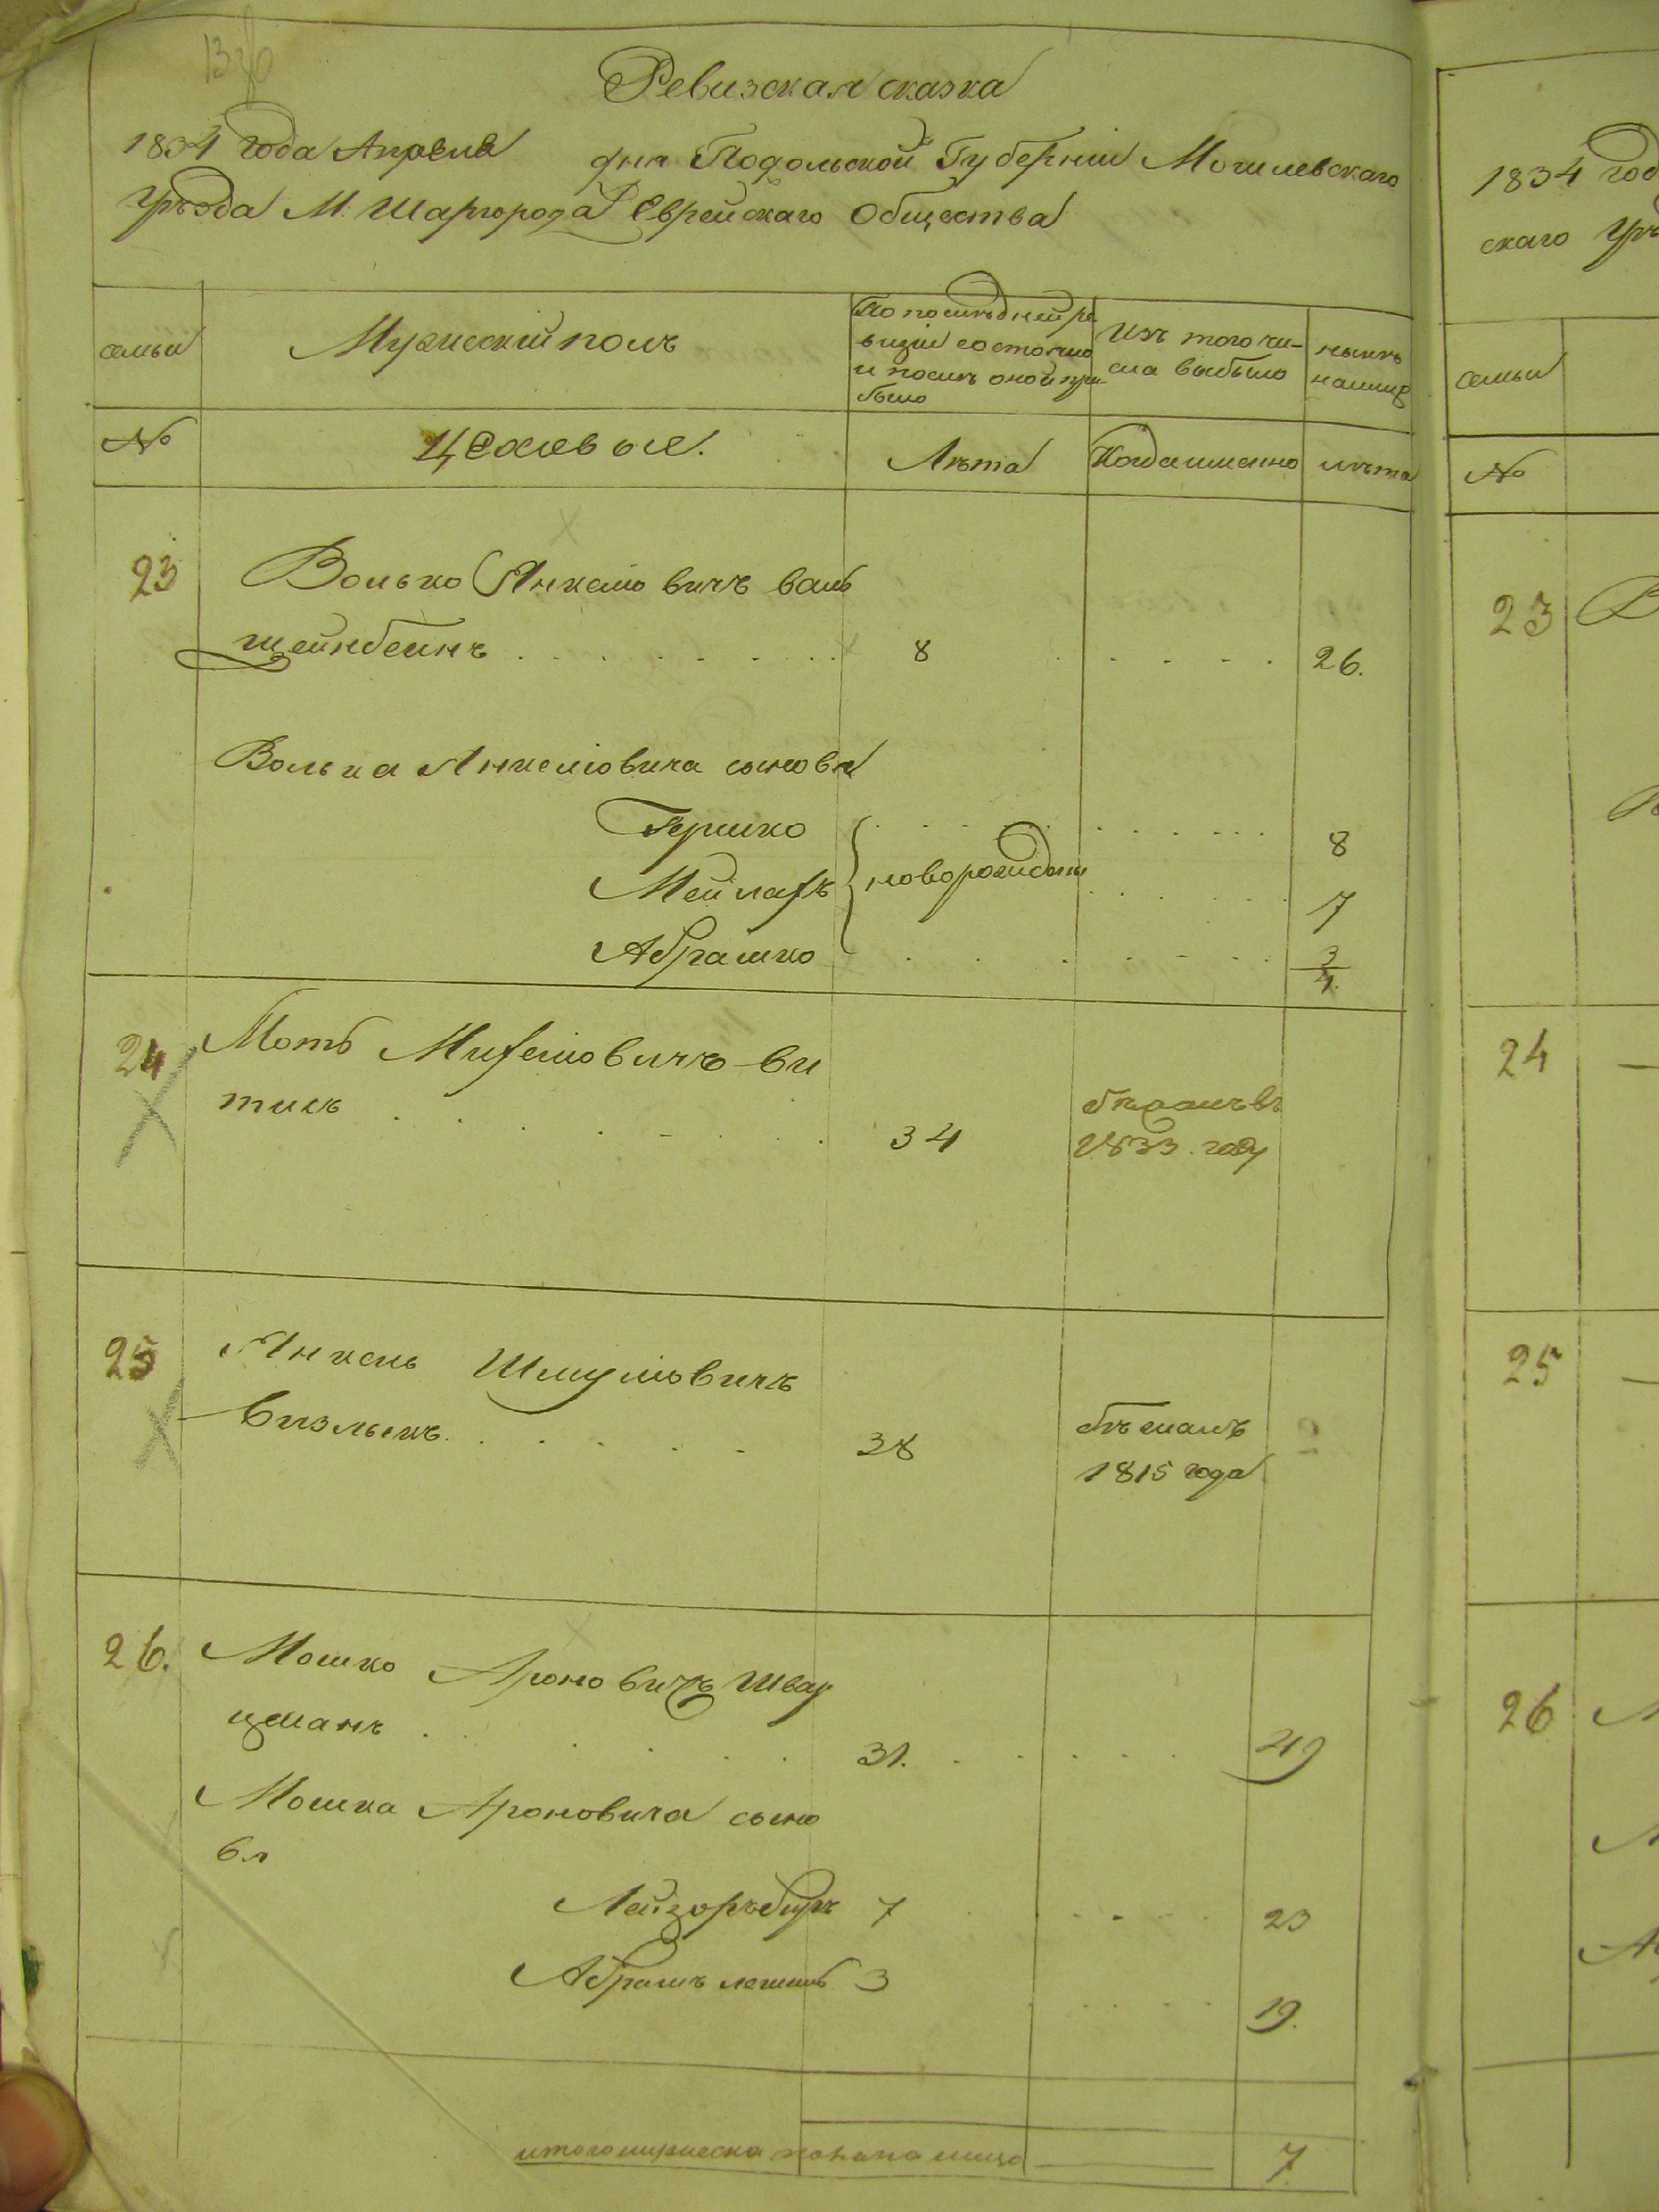 Ревизская сказка
1834 года Апреля дня Подольской Губернiи Могилевскаго
Уѣзда М: Шаргорода Еврейскаго Общества
семьи
Мужескiй полъ
По послѣдней ре-
визiи состояло
и послѣ оной при-
было
Изъ того чи-
сла выбыло
нынѣ
на лицо
№
Цеховые.
Лѣта
Когда именно
лѣта
23
Волько Янкелiовичъ вай
штейнбейнъ 8 26.
Волька Янкелiовича сыновья
Гершко 8
Мейлахъ новорожденны 7
Абрамко 3/4
24
Мотъ Михелiовичъ Ви
тисъ 34
бѣжалъ въ
1833 году
25
Янкель Шмулiовичъ
Визлыкъ 38
бѣжалъ
1815 года
26.
Мошко Ароновичъ Швар
цманъ 31. 49
Мошка Ароновича сыно
вя
Лейзоръберъ 7 23
Абрамъ 3 19.
итого мужеска пола на лицо 7
1834 год
скаго Уѣ
семьи
№
23 В
24
25
26 М